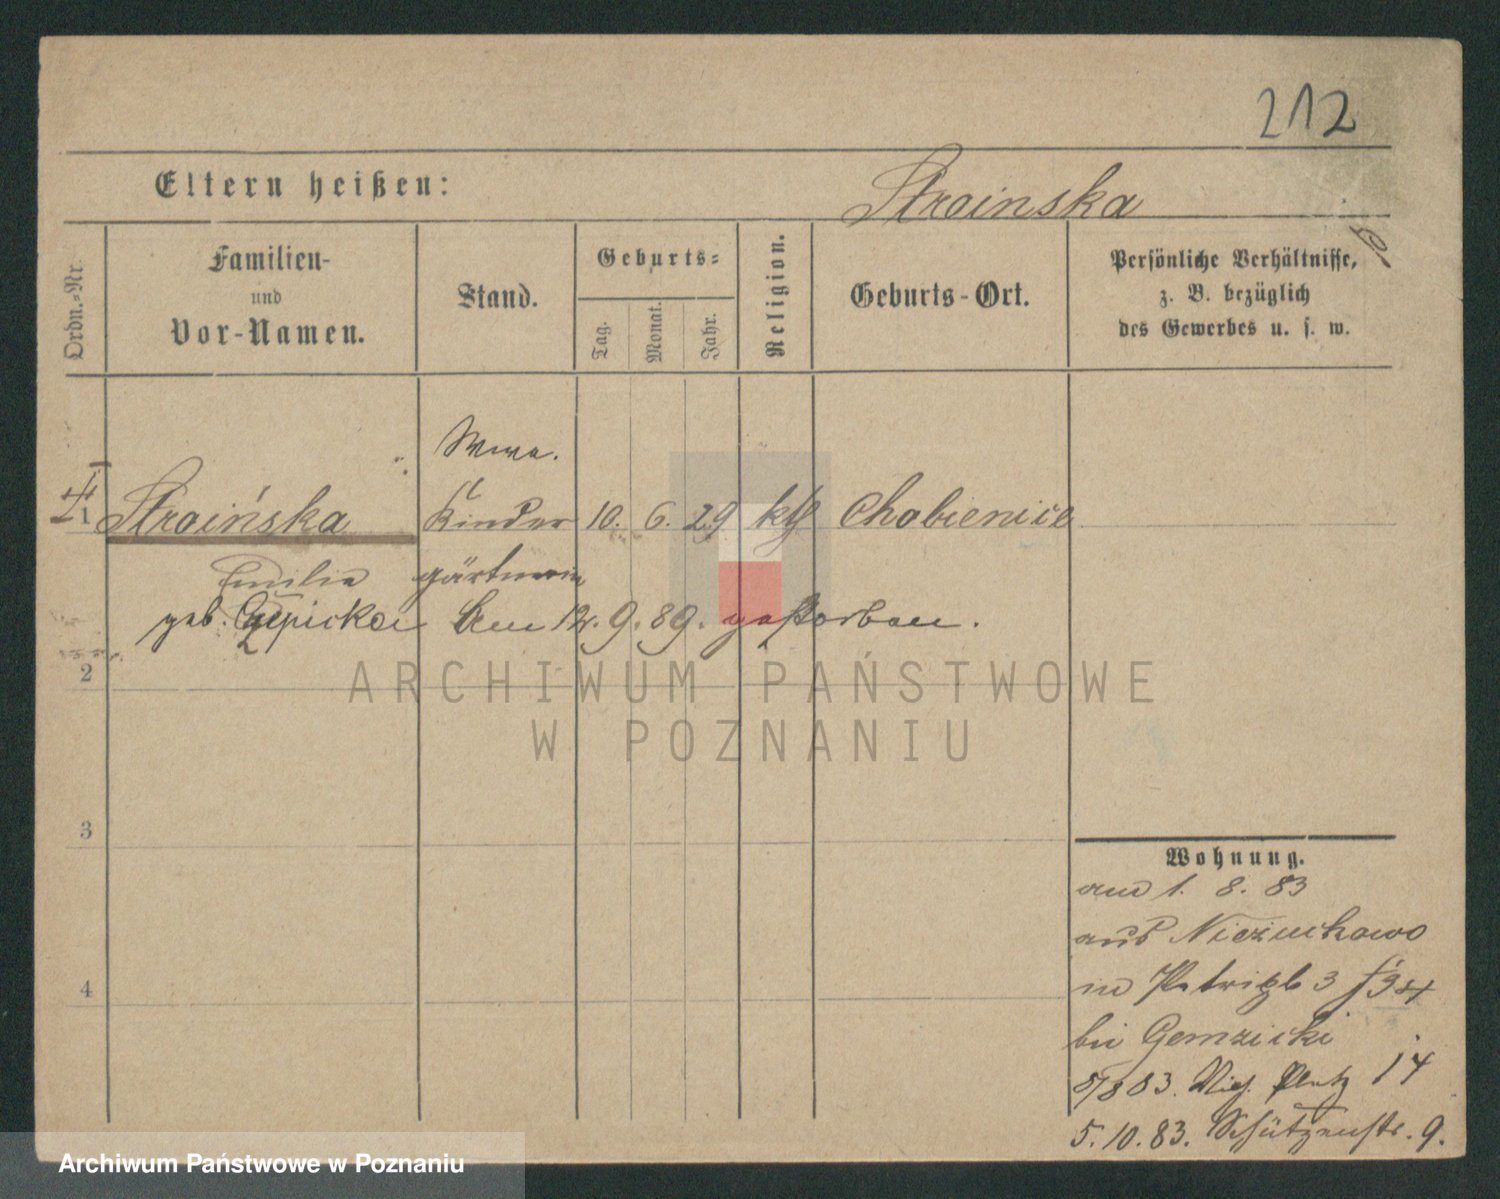 212
Eltern heißen:
Stroinska
Ordn.-Nr.
Familien-
und
Vor-Namen.
Stand.
Geburts-
Tag.
Monat.
Jahr.
Religion.
Geburts-Ort.
Persönliche Verhältnisse,
z. B. bezüglich
des Gewerbes u. s. w.
Wwe.
1 Stroińska Kinder 10. 6. 29 kth Chobienice
Emilie gärtnerin
geb. am 12. 9. 89. gestorben.
2
ARCHIWUM PAŃSTWOWE
W POZNANIU
3
4
Wohnung.
am 1. 8. 83
aus Niezuchowo
in Petripl 3
bei Gemzicki
5/8 83. Platz 14
5. 10. 83. Schützenstr. 9.
Archiwum Państwowe w Poznaniu